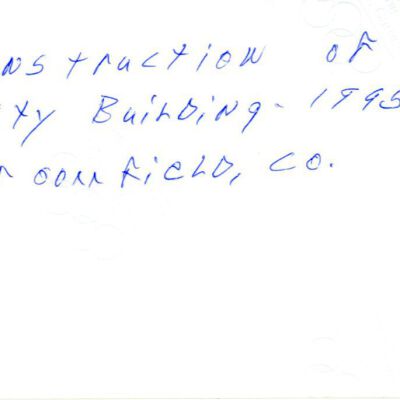 nstruction of
ty Building - 1995
oomfield, CO.